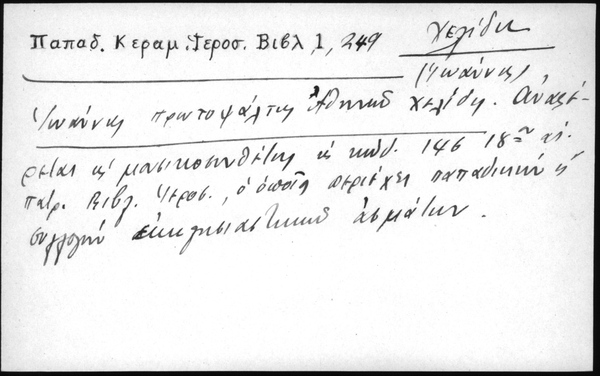 Παπαδ. Κεραμ. Ἱεροσ. Βιβλ 1, 249
Χελίδων
(Ἰωάννης)
Ἰωάννης πρωτοψάλτης Χελίδων. Ἀναφέ-
ρεται ὡς μουσικοσυνθέτης ἐν κώδ. 146 18ου αἰ.
πατρ. Βιβλ. Ἱεροσ., ὁ ὁποῖος περιέχει παπαδικὴν ἢ
συλλογὴν ἐκκλησιαστικῶν ᾀσμάτων.